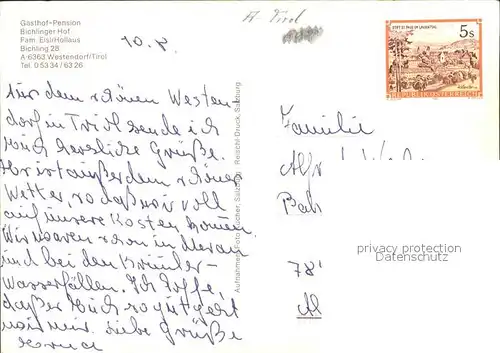 Gasthof-Pension
Bichlinger Hof
Fam. Eisl/Hollaus
Bichling 28
A-6363 Westendorf/Tirol
Tel. 0 53 34 / 63 26
10. 8.
A-Tirol
STIFT ST. PAUL IM LAVANTTAL
5 S
REPUBLIK ÖSTERREICH
Aus dem schönen Westen-
dorf in Tirol sende ich
Euch herzliche Grüße.
Hier ist außerdem schönes
Wetter, so daß wir voll
auf unsere Kosten kommen.
Wir waren schon in Meran
und bei den Krimler-
Wasserfällen. Ich hoffe,
daß es Euch so gut geht
wie mir. Liebe Grüße
Reischl Druck, Salzburg
Familie
privacy protection
Datenschutz
78